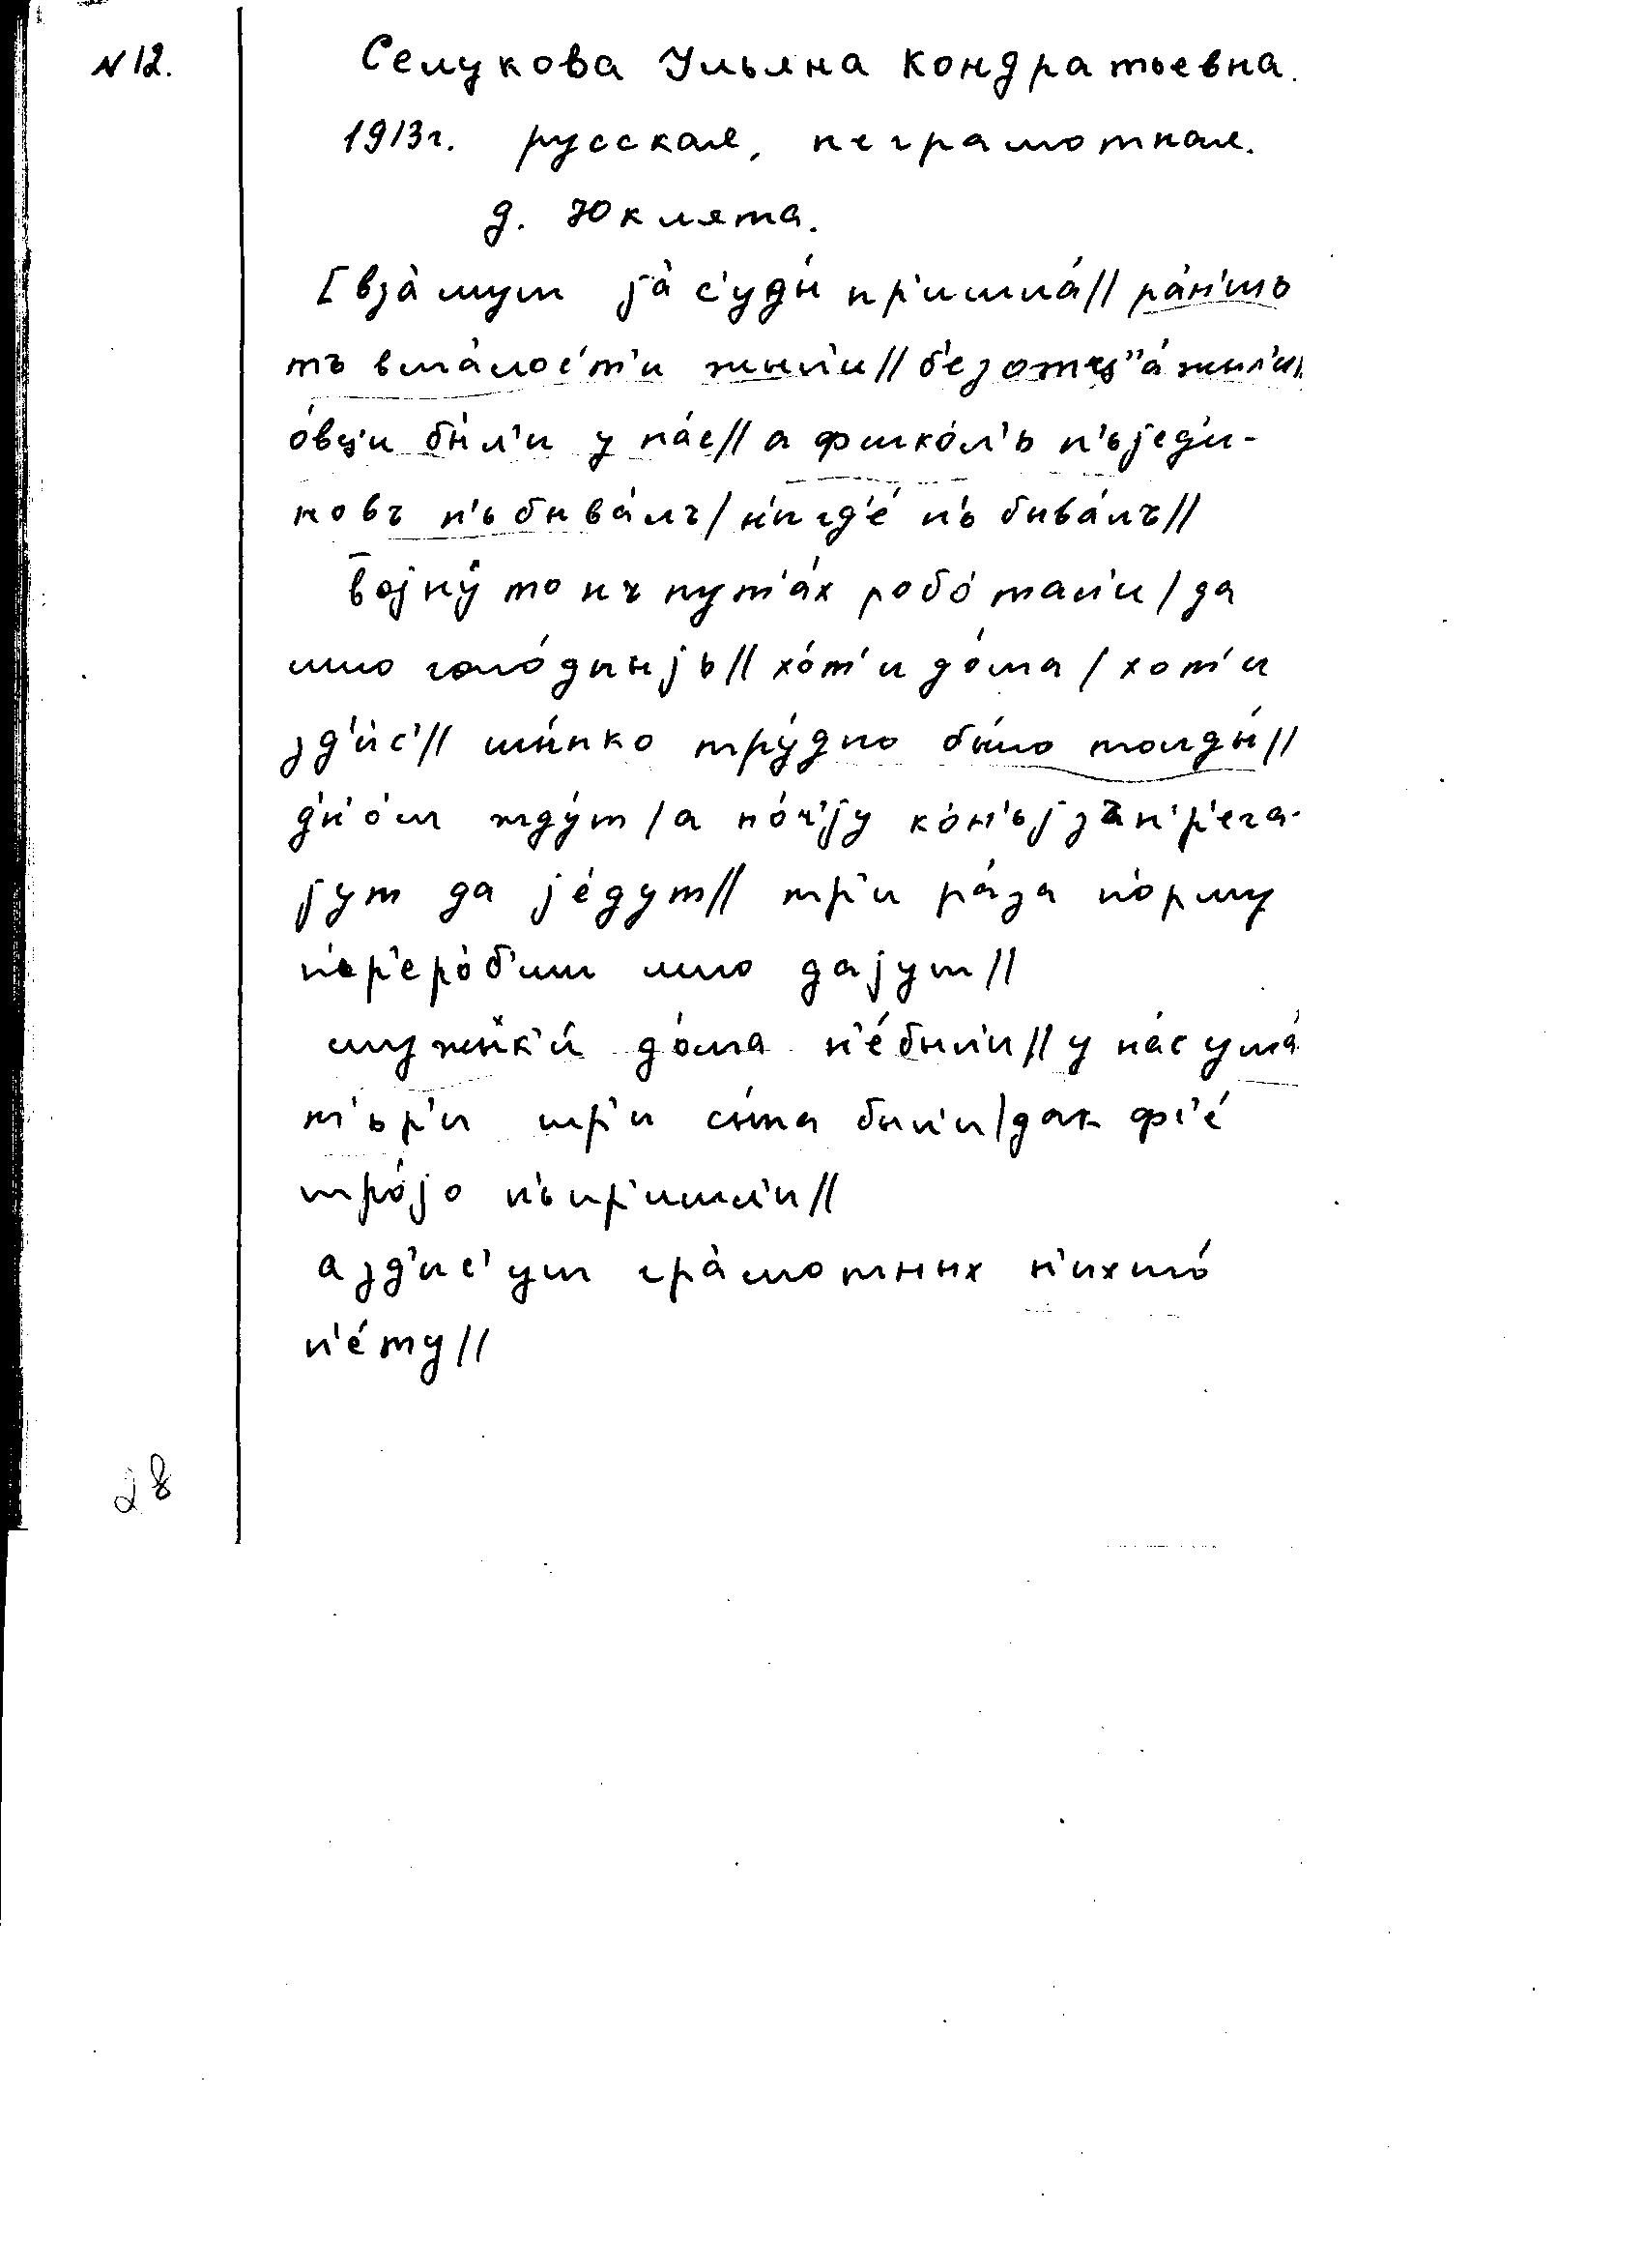 N 12.
Селукова Ульяна Кондратьевна.
1913г. русская, неграмотная.
д. Юклята.
[вза̀муш jа̀ с'уды́ пр'ишла́// ра́н'шъ
тъ вма́лос'т'и жыл'и// б'езотц"а́ жыл'и//
о́вц'и бы́л'и у на́с// а фшко́л'ь н'ьjед'и-
новъ н'ь быва́лъ/ н'игд'е́ н'ь быва́лъ//
војну́ то нъ пут'а́х робо́тал'и/ да
шло голо́дныjь// хо́т' и до́ма/ хот' и
зд'и́с'// шы́пко тру́дно бы́ло толды́//
дн'о́м жду́т/ а но́ч'jу ко́н'ьj зъпр'ега-
jут да jе́дут// тр'и ра́за но́рму
п'ер'еро́б'иш шло даjут//
мужык'и́ до́ма н'е́был'и// у на́с ума́
т'ьр'и тр'и сы́на был'и/ дак фс'е́
тро́jо н'ьпр'ишл'и//
а зд'ис' уш гра́мотных н'ихто́
н'е́ту//
28